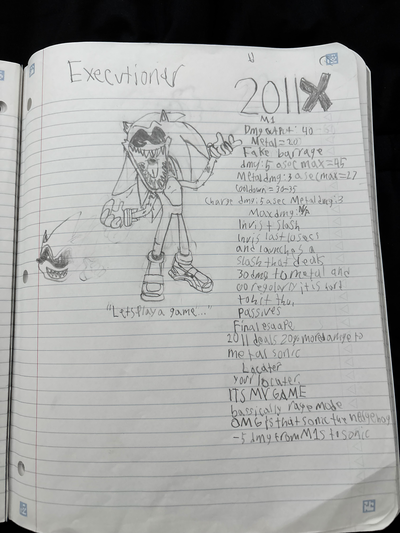 Executioner
2011X
M1
Dmg output: 40
Metal=20
Fake barrage
dmg: 5 asec max=45
Metal dmg: 3 asec max=27
cooldown=30-35
Charge dmg: 5 asec Metal dmg: 3
Max dmg: N/A
Invis + slash
Invis last 10 sec
and launches a
slash that deals
30 dmg to metal and
60 regularly it is hard
to hit tho,
passives
Final escape
2011 deals 20% more damage to
metal sonic
Locater
your locater,
ITS MY GAME
bassically rage mode
OMG is that sonic the hedgehog
-5 dmg from M1s to sonic
"Lets play a game..."